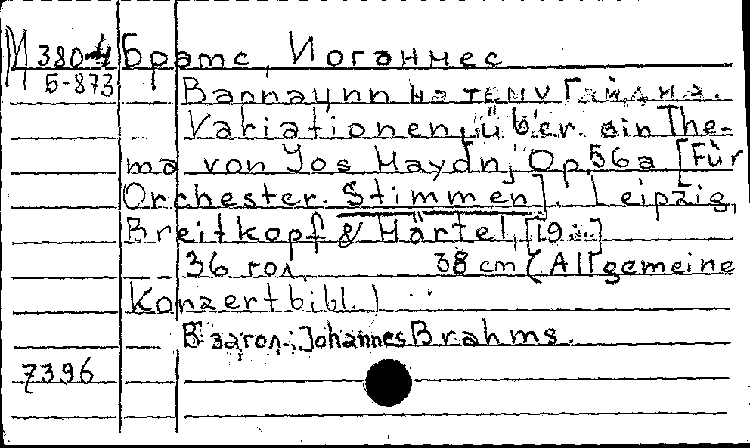 М 380-4 Брамс, Иоганнес
Б-873
Вариации на тему Гайдна.
Variationen über ein The-
ma von Jos Haydn, Op 56a [Für
Orchester. Stimmen]. Leipzig,
Breitkopf & Härtel, [19..]
36 гол. 38 cm (Allgemeine
Konzertbibl.)
В загол.: Johannes Brahms.
7396